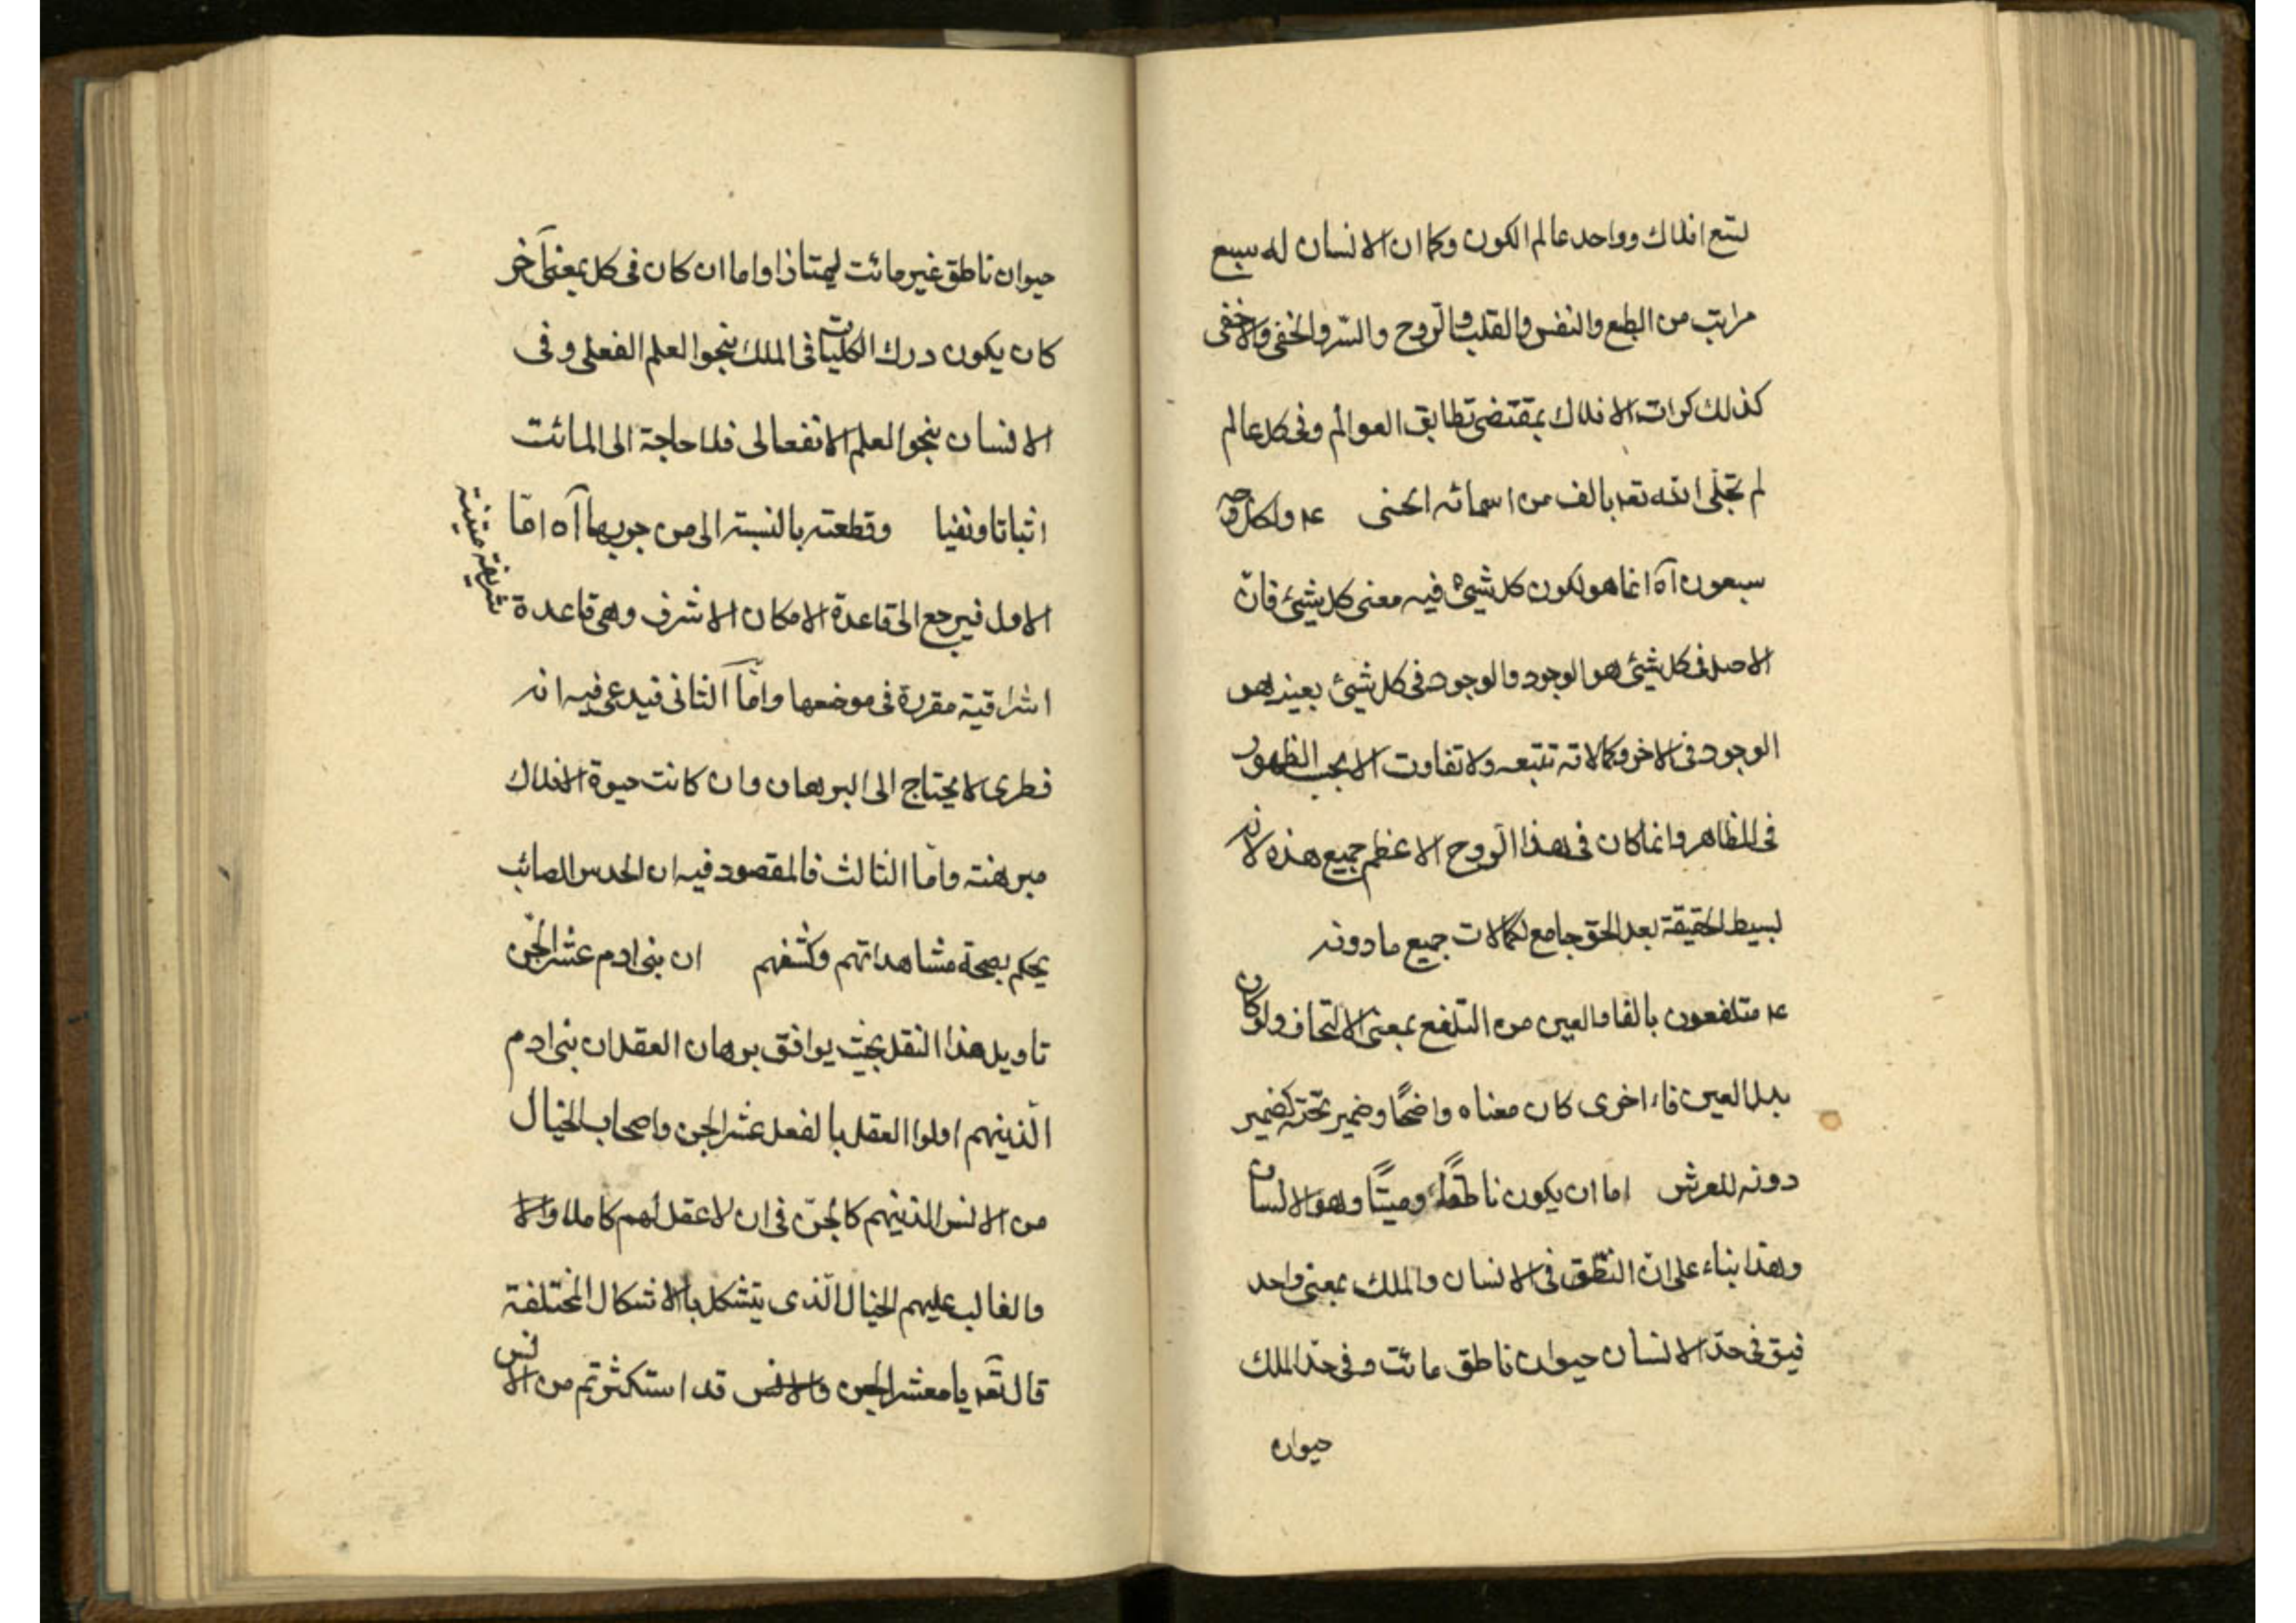 لتسع افلاك وواحد عالم الكون وكما ان الانسان له سبع
مراتب من الطبع والنفس والقلب والروح والسّر والخفى والاخفى
كذلك كرات الافلاك بمقتضى تطابق العوالم وفى كل عالم
لم تجلّى الله تعه بالف من اسمائه الحسنى ولكل وجه
سبعون آه انما هو لكون كل شيئ فيه معنى كل شيئ فانّ
الاصل فى كل شيئ هو الوجود والوجود فى كل شيئ بعينه هو
الوجود فى الاخر وكمالاته تتبعه ولا تفاوت الا بحسب الظهور
فى المظاهر وانما كان فى هذا الروح الاعظم جميع هذه لانه
لبسيط الحقيقة بعد الحق جامع لكمالات جميع ما دونه
متلفعون بالفا والعين من التلفع بمعنى الالتحاف ولو كان
بدل العين فاء اخرى كان معناه واضحًا وضمير تحته كضمير
دونه للعرش اما ان يكون ناطقًا وميتًا وهو الانسان
وهذا بناء على ان النطق فى الانسان والملك بمعنى واحد
فيق فى حدّ الانسان حيوان ناطق مائت وفى حدّ الملك
حيوان
حيوان ناطق غير مائت ليمتازا واما ان كان فى كل بمعنى آخر
كان يكون درك الكليات فى الملك بنحو العلم الفعلى وفى
الانسان بنحو العلم الانفعالى فلا حاجة الى المائت
اثباتا ونفيا وقطعته بالنسبة الى من جوبها آه امّا
الاول فيرجع الى قاعدة الامكان الاشرف وهى قاعدة
شريفة متينة
اشراقية مقررة فى موضعها وامّا الثانى فيدعى فيه انه
فطرى لا يحتاج الى البرهان وان كانت حيوة الافلاك
مبرهنة وامّا الثالث فالمقصود فيه ان الحدس الصائب
يحكم بصحة مشاهداتهم وكشفهم ان بنى ادم عشر الجّن
تاويل هذا النقل بحيث يوافق برهان العقل ان بنى ادم
الّذينهم اولوا العقل بالفعل عشر الجن واصحاب الخيال
من الانس الذينهم كالجنّ فى ان لا عقل لهم كاملا والا
والغالب عليهم الخيال الّذى يتشكل بالاشكال المختلفة
قال تعه يا معشر الجن والانس قد استكثرتم من الانس